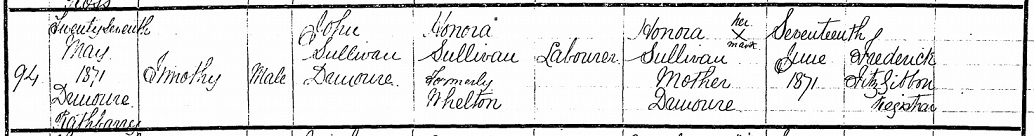 94
Twenty Seventh
May
1871
Damoure
Rathbarry
Timothy
Male
John
Sullivan
Damoure.
Honora
Sullivan
formerly
Whelton
Labourer
Honora her
Sullivan X mark
Mother
Damoure
Seventeenth
June
1871
Frederick
FitzGibbon
Registrar